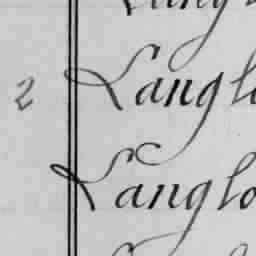 2 Langlo
Langlo